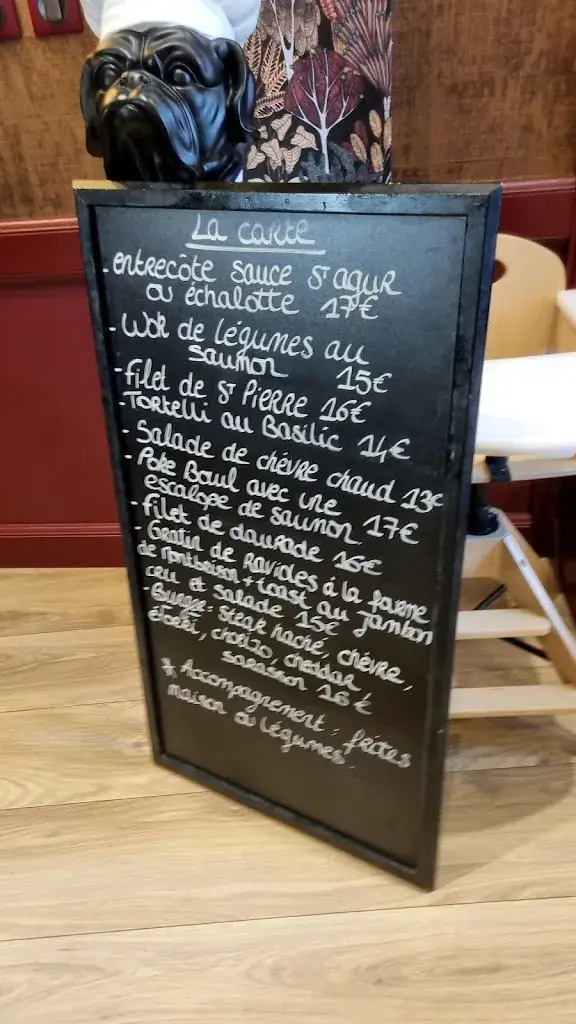 La carte
- entrecôte sauce St agur
ou échalotte 17€
- Wok de légumes au
saumon 15€
- filet de St PIERRE 16€
- Tortelli au Basilic 14€
- Salade de chèvre chaud 13€
- Poke Boul avec une
escalope de saumon 17€
- filet de daurade 16€
- Gratin de Ravioles à la fourme
de Montbrison + toast au jambon
cru et salade 15€
- Burger: Steak haché, chèvre,
chorizo cheddar
16€
* Accompagnement: frites
maison ou légumes.